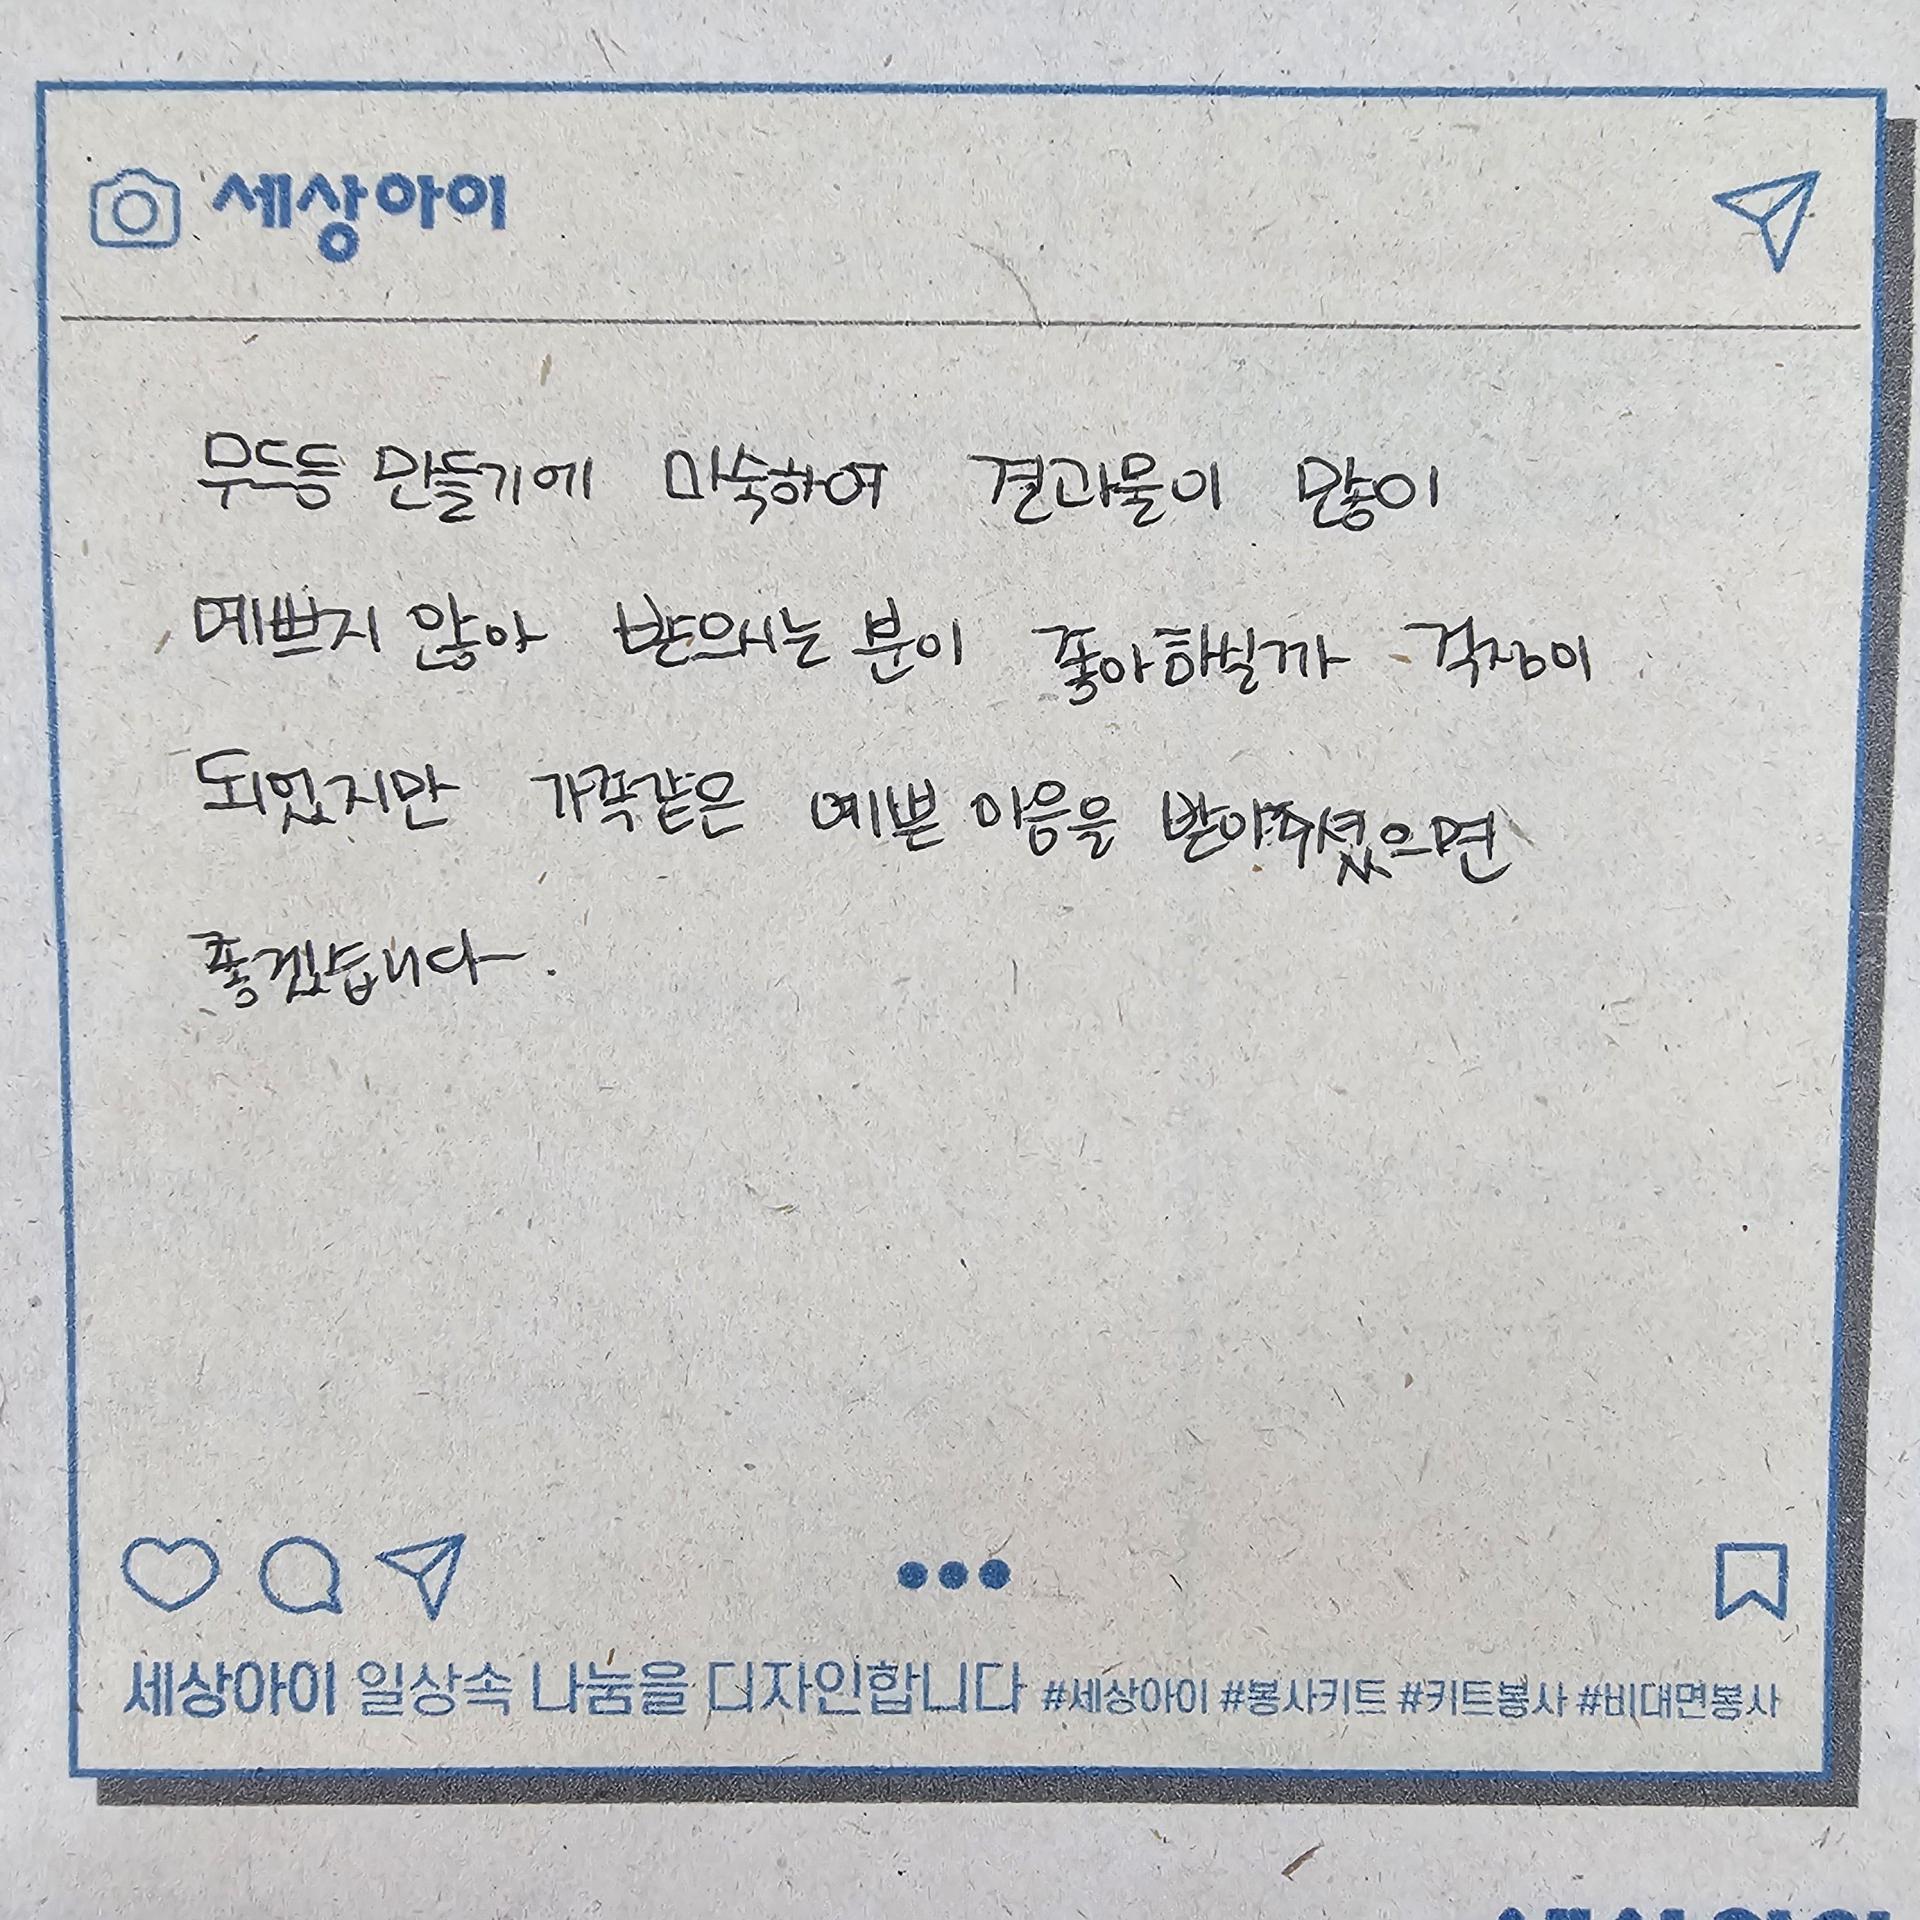 세상아이
무드등 만들기에 미숙하여 결과물이 많이
예쁘지 않아 받으시는 분이 좋아하실까 걱정이
되었지만 가족같은 예쁜 마음을 받아주셨으면
좋겠습니다.
세상아이 일상속 나눔을 디자인합니다 #세상아이 #봉사키트 #키트봉사 #비대면봉사